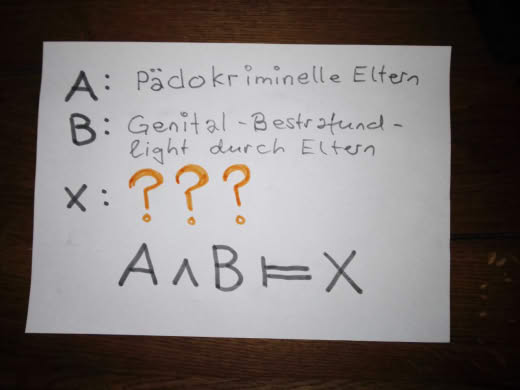 A: Pädokriminelle Eltern
B: Genital-Bestrafund-
light durch Eltern
X: ???
A ∧ B ⊨ X